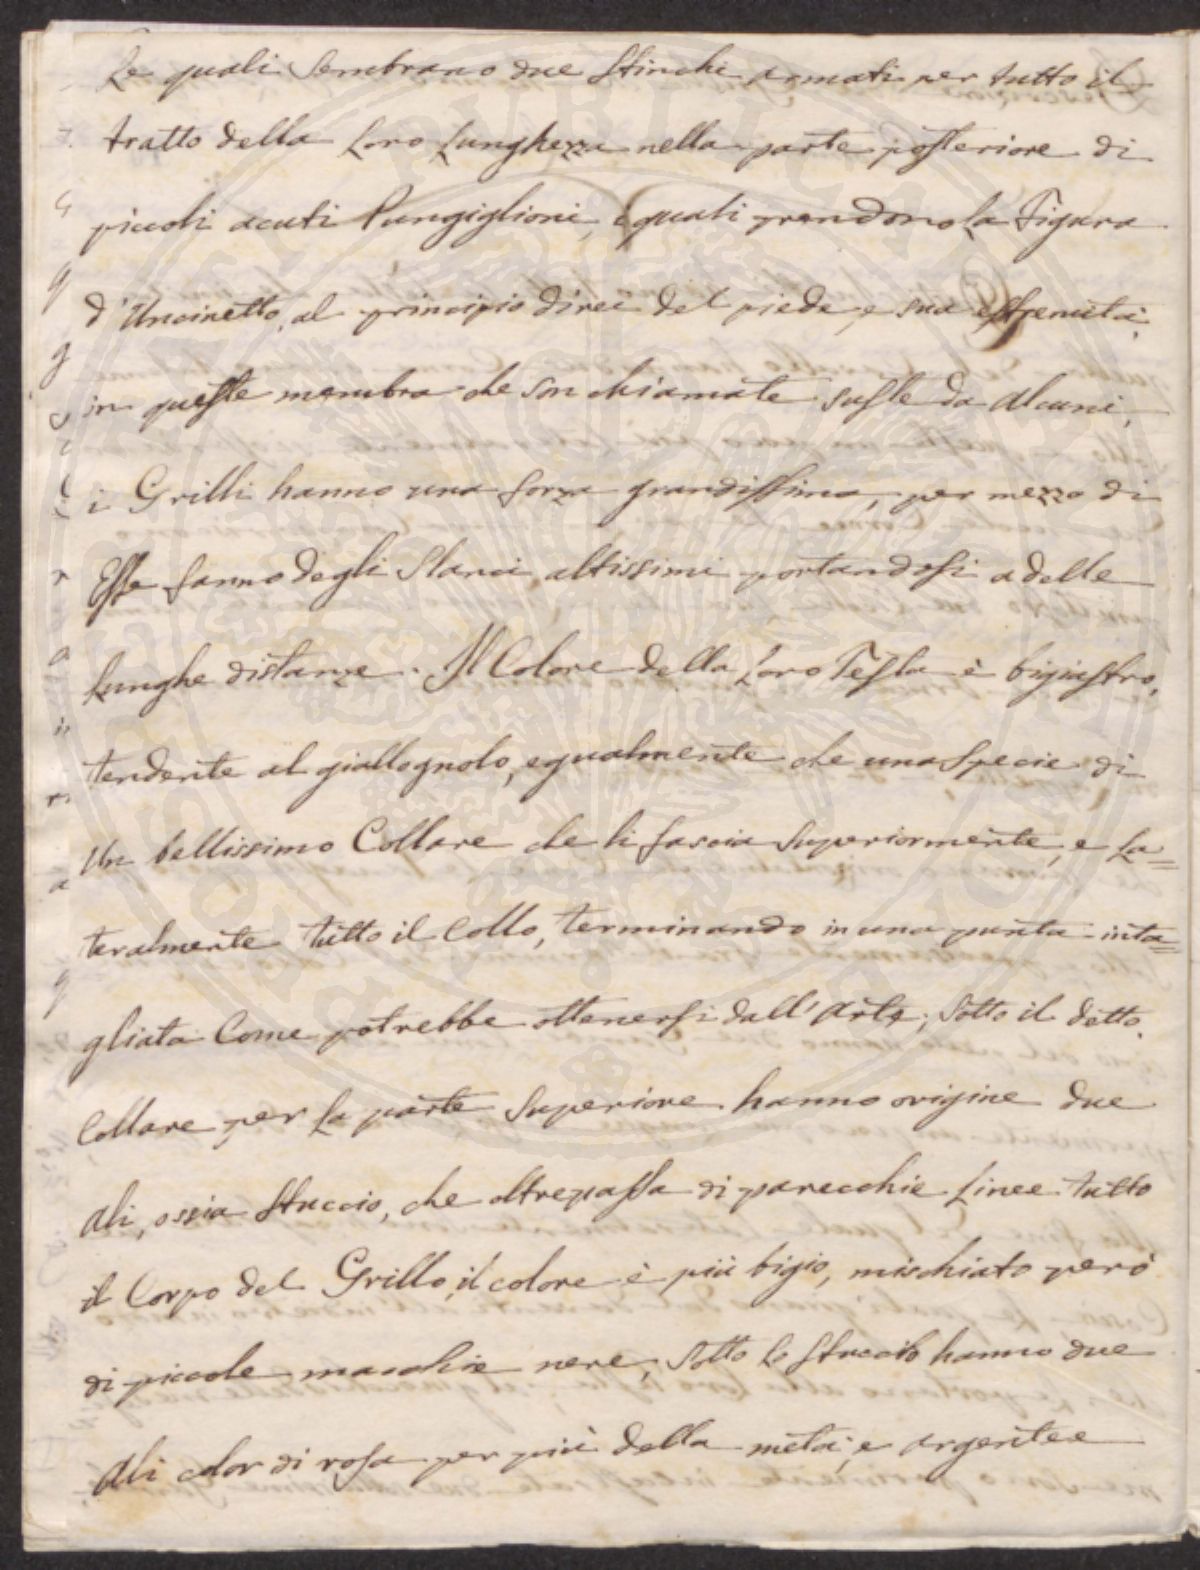 Le quali sembrano due stinchi armati per tutto il
tratto della loro lunghezza nella parte posteriore di
piccoli acuti Pungiglioni, i quali prendono la Figura
d'Uncinetto, al principio direi del piede, e sua estremità,
in queste membra che son chiamate suste da alcuni,
i Grilli hanno una forza grandissima, per mezzo di
Esse fanno degli Slanci altissimi portandosi a delle
lunghe distanze. Il Colore della loro Testa è bigiastro,
tendente al giallognolo, egualmente che una specie di
Un bellissimo Collare che li fascia superiormente, e la=
teralmente tutto il Collo, terminando in una punta inta=
gliata Come potrebbe ottenersi dall'Arte; sotto il detto
Collare per la parte superiore hanno origine due
Ali, ossia Stuccio, che oltrepassa di parecchie linee tutto
il Corpo del Grillo, il colore è più bigio, mischiato però
di piccole macchie nere, sotto lo stuccio hanno due
Ali color di rosa per più della metà, e argentee